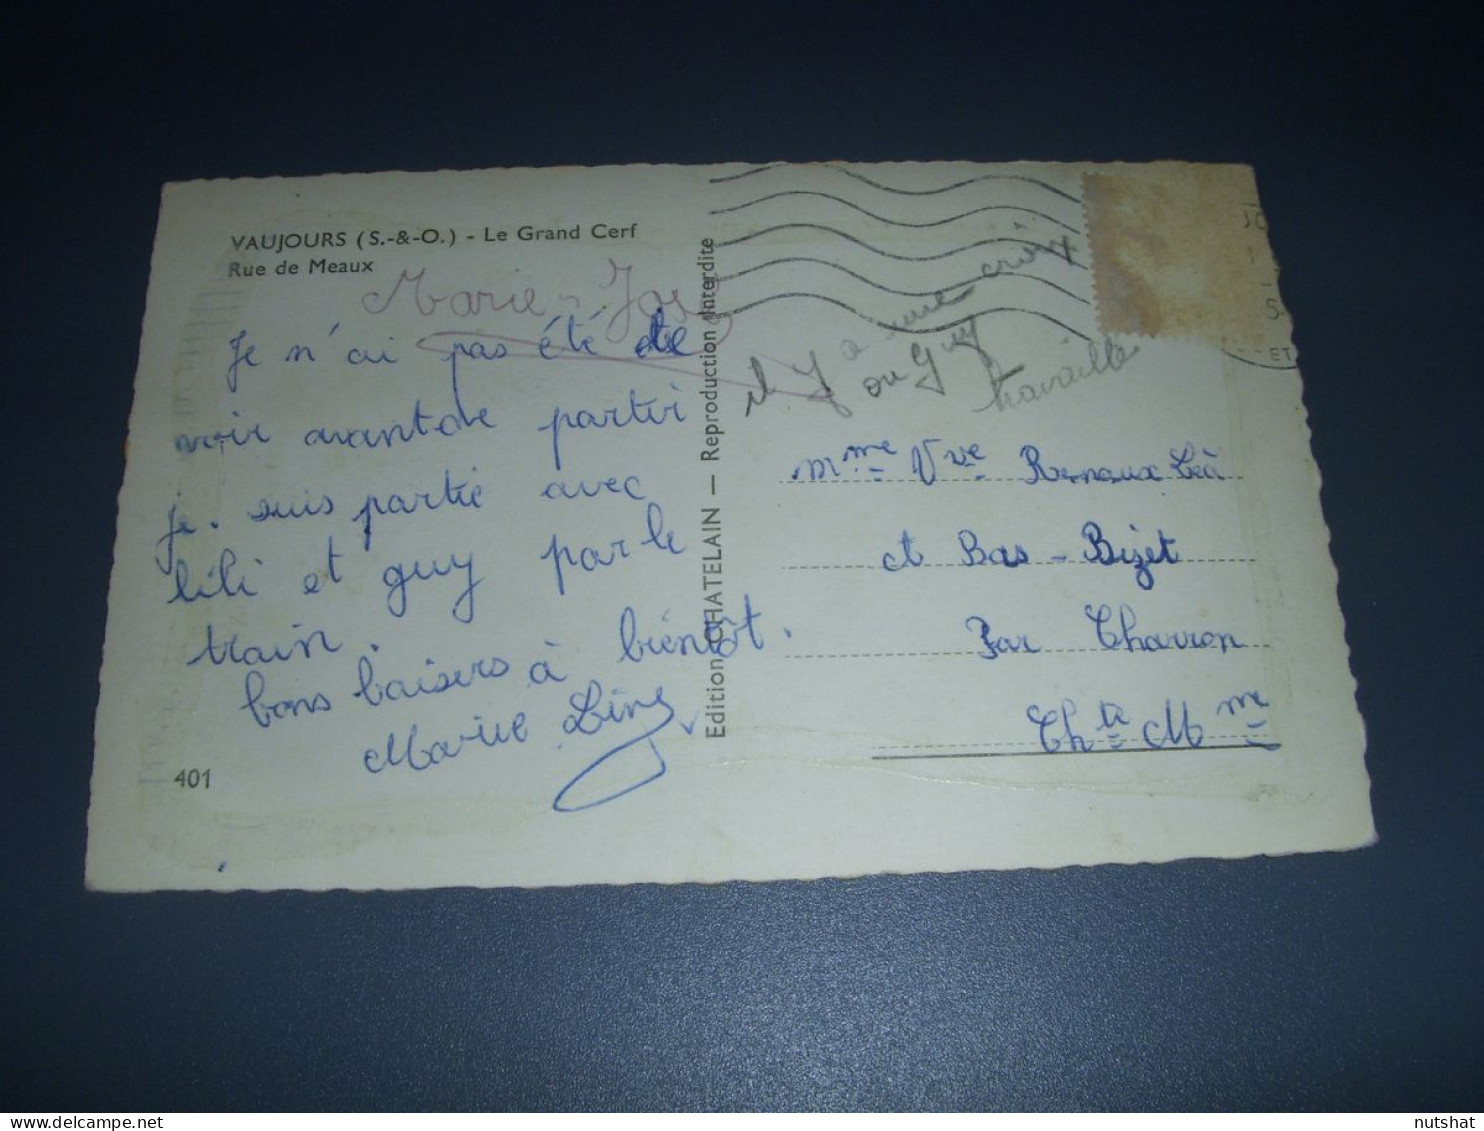 VAUJOURS (S.-&-O.) - Le Grand Cerf
Rue de Meaux
Marie-José
Je n'ai pas été te
voir avant de partir
je suis partie avec
lili et guy par le
train.
bons baisers à bientôt.
Marie Line
401
Edition CHATELAIN — Reproduction Interdite
il y a une croix
ou Guy
travaille
Mme Vve Renaux Léa
et Bas-Bizet
Par Charron
Chte Mme
ET
delcampe.net
nutshat